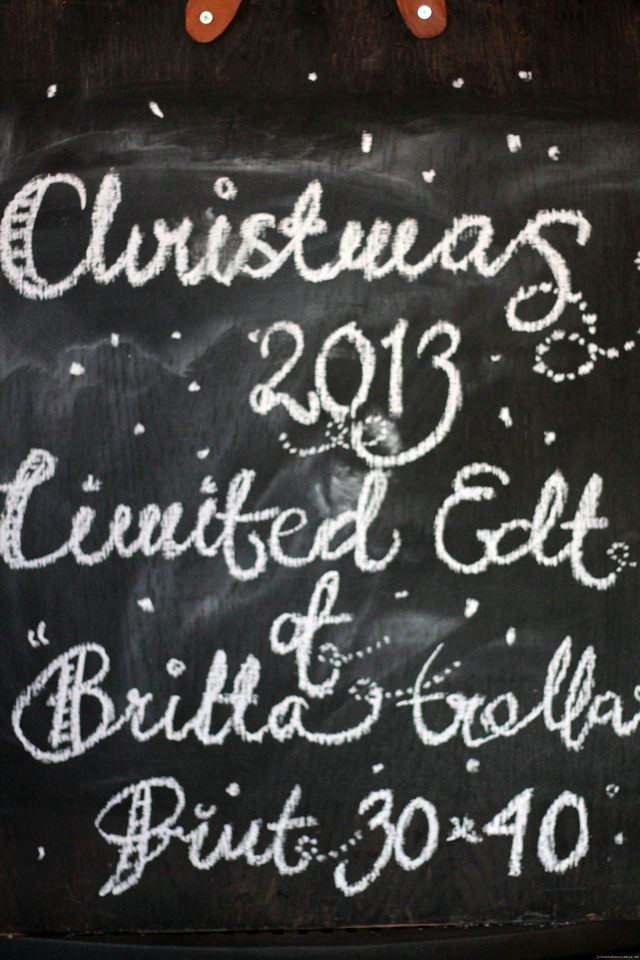 Christmas
2013
Limited Edt.
of
"Britta trolla
Print 30x40